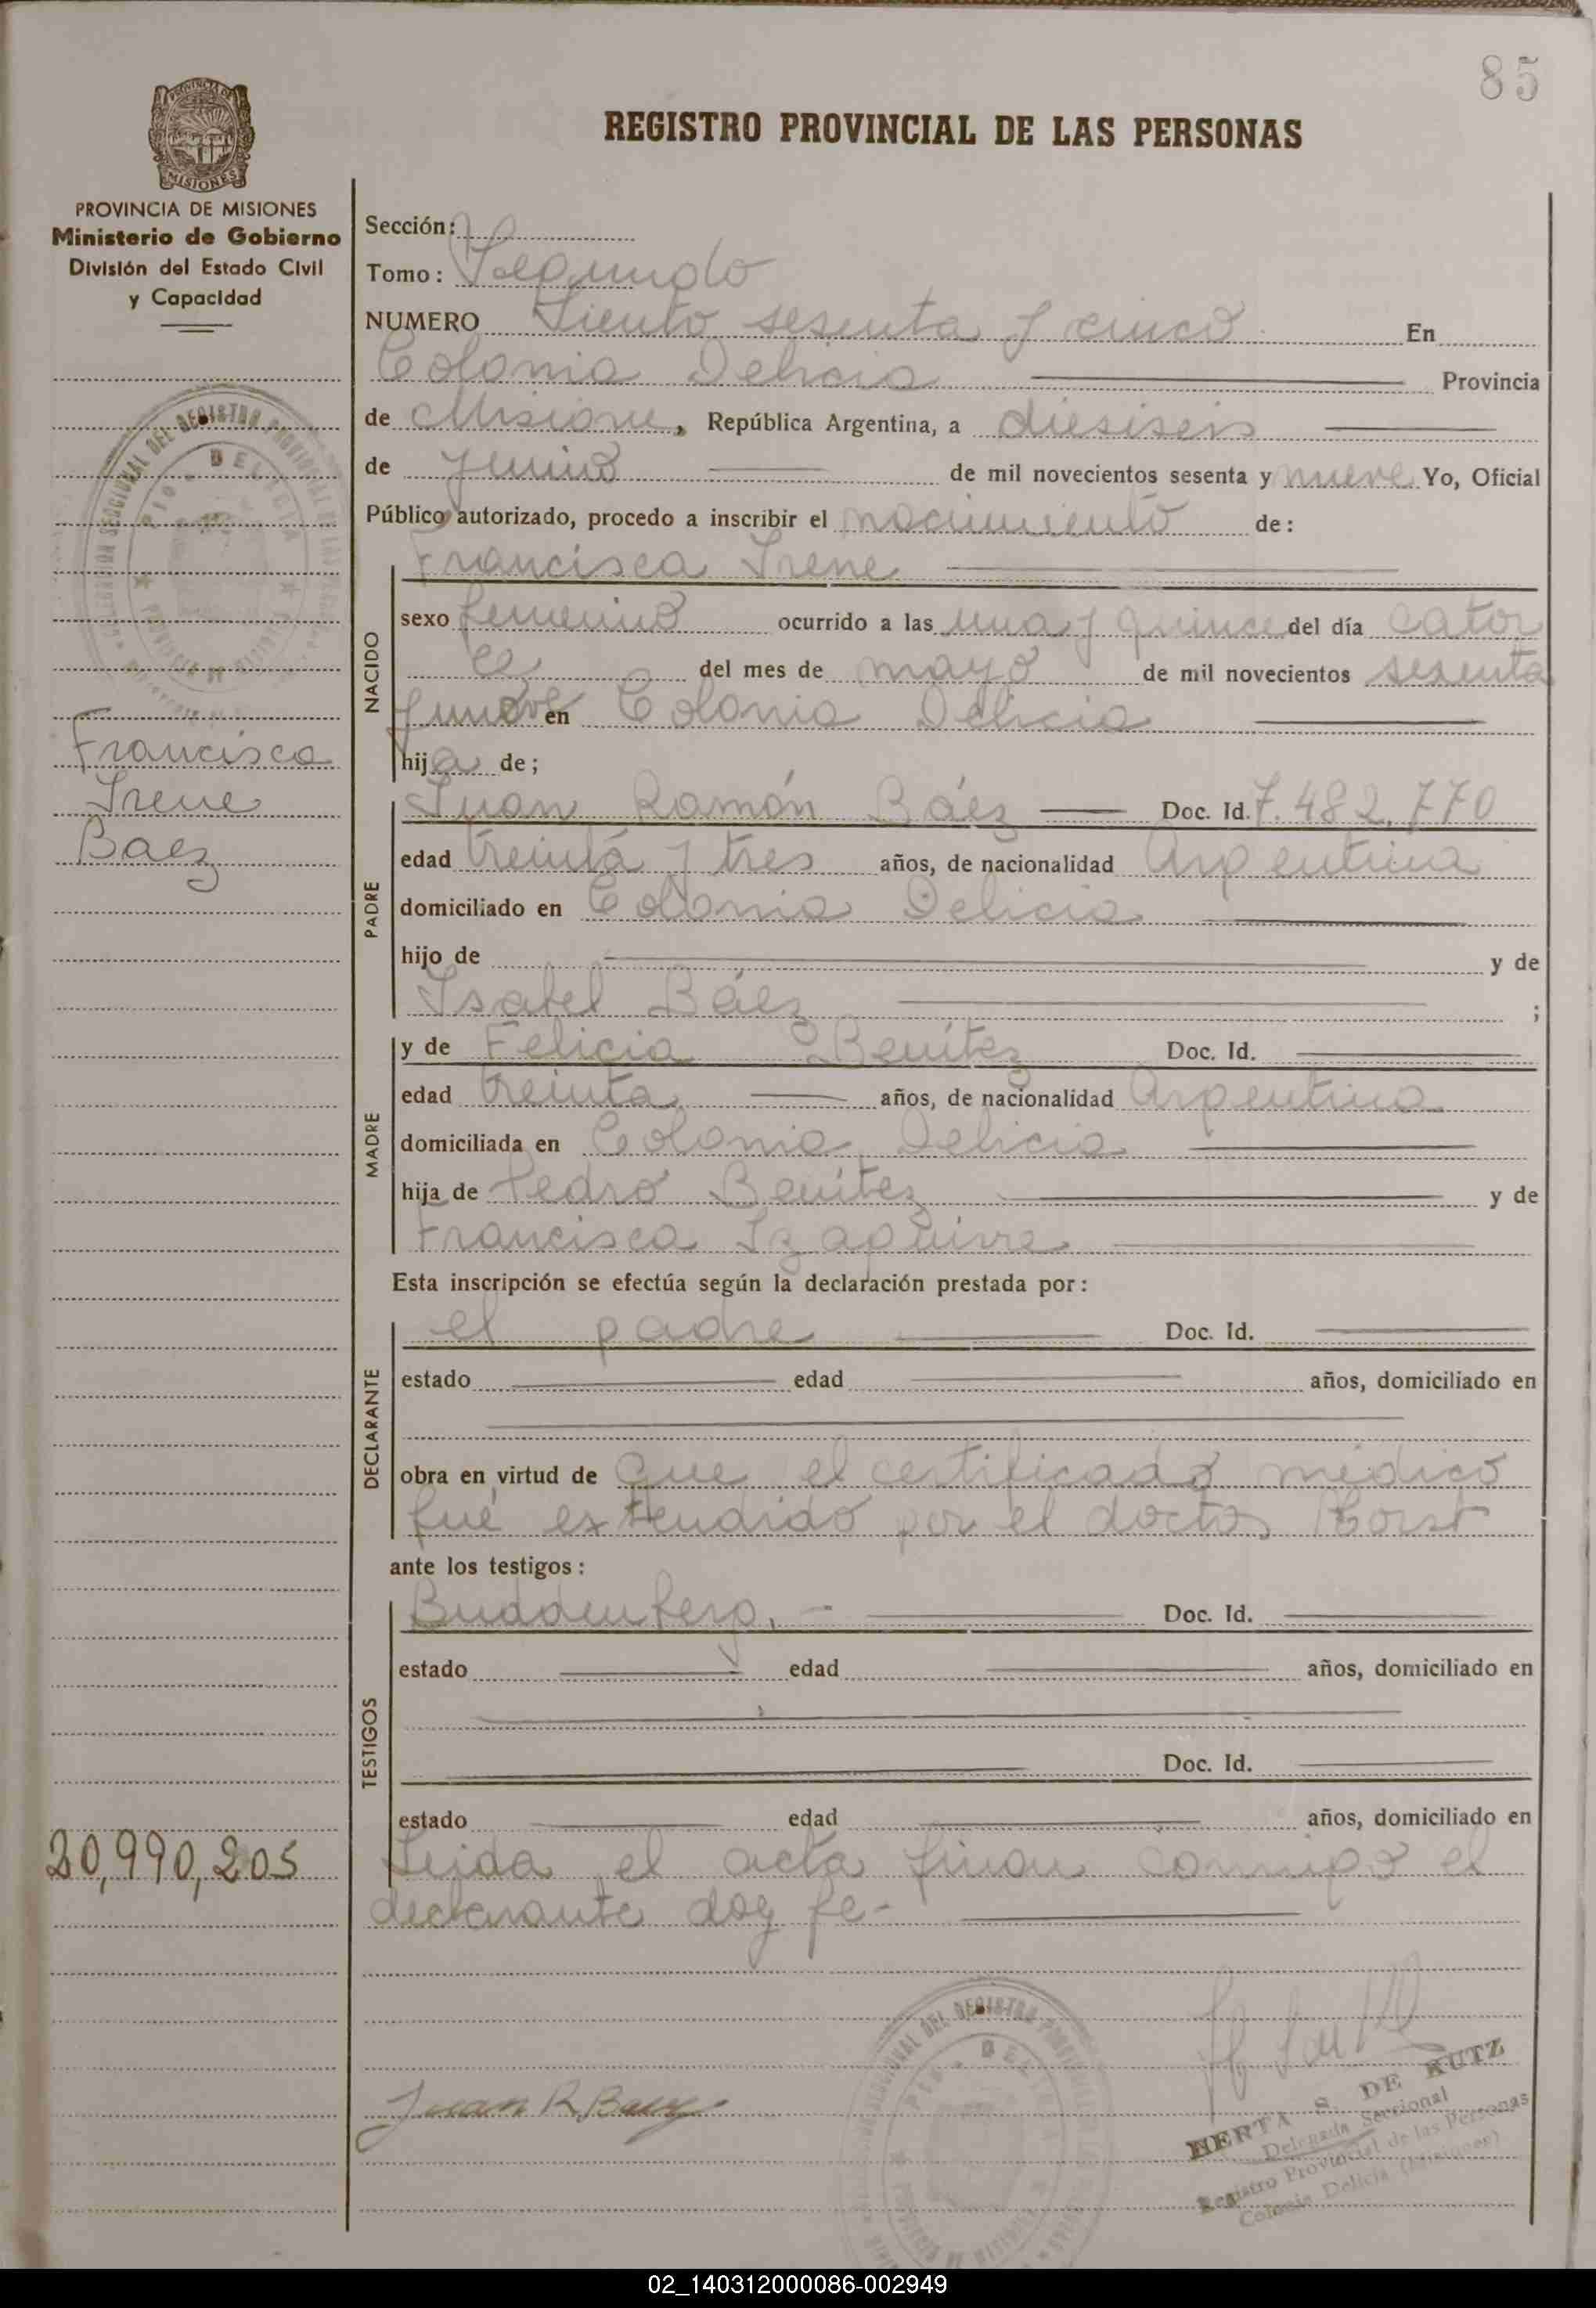 85
REGISTRO PROVINCIAL DE LAS PERSONAS
PROVINCIA DE MISIONES
Ministerio de Gobierno
División del Estado Civil
y Capacidad
Francisca
Irene
Baez
20,990,205
Sección:
Tomo: Segundo
NUMERO Siento sesenta y cinco En
Colonia Delicia Provincia
de Misiones, República Argentina, a diesiseis
de Junio de mil novecientos sesenta y nueve Yo, Oficial
Público autorizado, procedo a inscribir el nacimiento de:
NACIDO
Francisca Irene
sexo femenino ocurrido a las una y quince del día cator
ce del mes de mayo de mil novecientos sesenta
y nueve en Colonia Delicia
hija de;
PADRE
Juan Ramón Báez Doc. Id. 7.482.770
edad treinta y tres años, de nacionalidad Argentina
domiciliado en Colonia Delicia
hijo de y de
Isabel Báez ;
MADRE
y de Felicia Benítez Doc. Id.
edad treinta años, de nacionalidad Argentina
domiciliada en Colonia Delicia
hija de Pedro Benítez y de
Francisca Izaguirre
Esta inscripción se efectúa según la declaración prestada por:
DECLARANTE
el padre Doc. Id.
estado edad años, domiciliado en
obra en virtud de que el certificado médico
fué extendido por el doctor Horst
ante los testigos:
TESTIGOS
Buddenberg.- Doc. Id.
estado edad años, domiciliado en
Doc. Id.
estado edad años, domiciliado en
Leida el acta firman conmigo el
declarante doy fe-
Juan R. Baez
HERTA S. DE KUTZ
Delegada Seccional
Registro Provincial de las Personas
Colonia Delicia (Misiones)
02_140312000086-002949